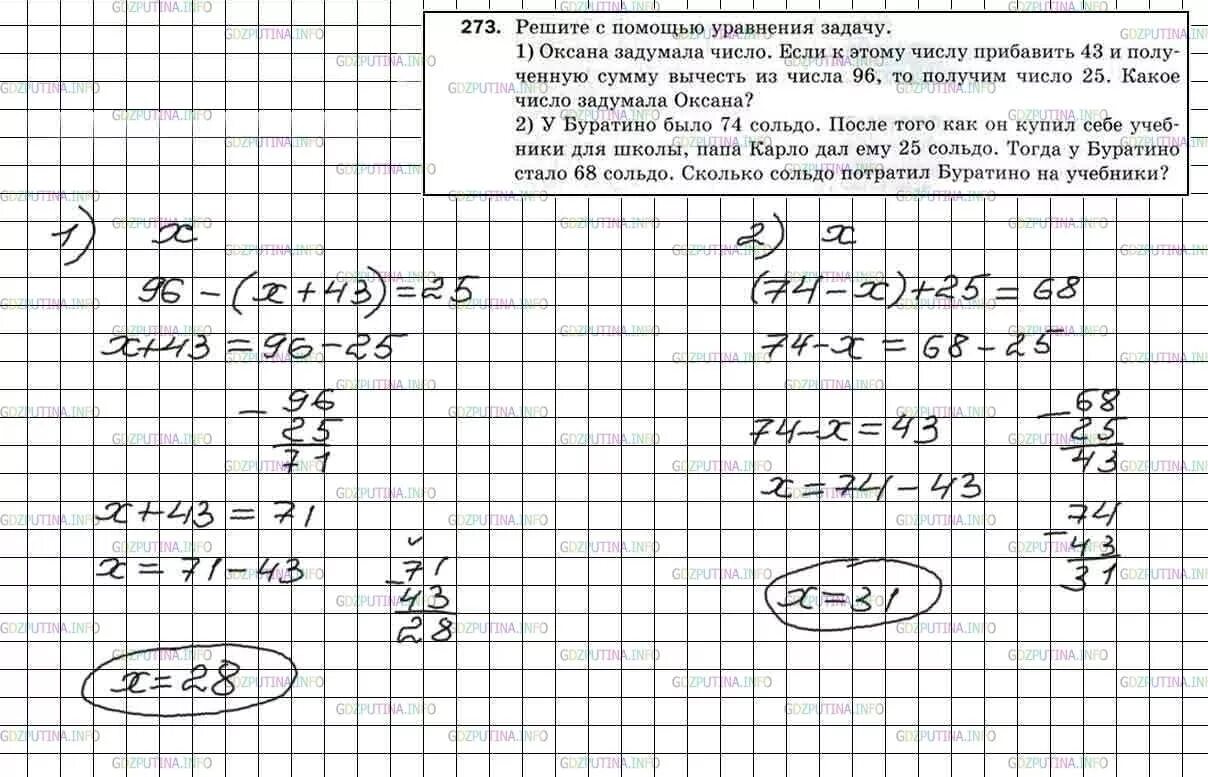 273. Решите с помощью уравнения задачу.
1) Оксана задумала число. Если к этому числу прибавить 43 и полу-
ченную сумму вычесть из числа 96, то получим число 25. Какое
число задумала Оксана?
2) У Буратино было 74 сольдо. После того как он купил себе учеб-
ники для школы, папа Карло дал ему 25 сольдо. Тогда у Буратино
стало 68 сольдо. Сколько сольдо потратил Буратино на учебники?
1) x
96 - (x + 43) = 25
x + 43 = 96 - 25
- 96
25
71
x + 43 = 71
x = 71 - 43
- 71
43
28
x = 28
2) x
(74 - x) + 25 = 68
74 - x = 68 - 25
- 68
25
43
74 - x = 43
x = 74 - 43
- 74
43
31
x = 31
GDZPUTINA.INFO